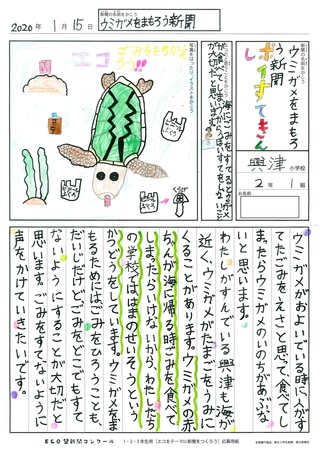 2020年 1月 15日
新聞の名前をかこう
ウミガメをまもろう新聞
新聞の名前をかこう
ウミガメをまもろ
う新聞
ポイすてきん
し
興津 小学校
2年 1組
お名前
写真をはったり、イラストをかこう
エコ
ごみをもちかえ
ろう!!
ふくろ
ふくろ
ふくろ
くらげ
海にごみをすてるとウミガメ
ウミガメがおよいでいる時に人がす
てたごみをえさと思って、食べてし
まったらウミガメのいのちがあぶな
いと思います。
わたしがすんでいる興津も海が
近く、ウミガメがたまごをうみに
くることがあります。ウミガメの赤
ちゃんが海に帰る時ごみを食べて
しまったらいけないから、わたしたち
の学校でははまのせいそうという
かつどうをしています。ウミガメをま
もるためには、ごみをひろうことも、
だいじだけどごみをどこでもすて
ないようにすることが大切だと
思います。ごみをすてないように
声をかけていきたいです。
ECO壁新聞コンクール
1・2・3年生用 「エコをテーマに新聞をつくろう」応募用紙